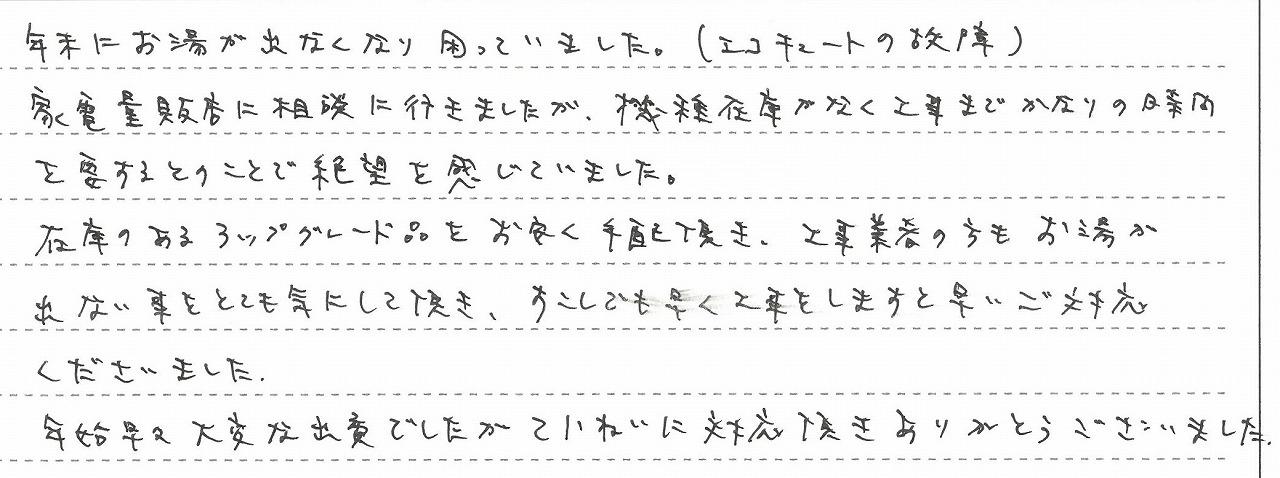 年末にお湯が出なくなり困っていました。(エコキュートの故障)
家電量販店に相談に行きましたが、機種在庫がなく工事までかなりの日数間
を要するとのことで絶望を感じていました。
在庫のあるアップグレード品をお安く手配頂き、工事業者の方もお湯が
出ない事をとても気にして頂き、すこしでも早く工事をしますと早いご対応
くださいました.
年始早々大変な出費でしたがていねいに対応頂きありがとうございました.